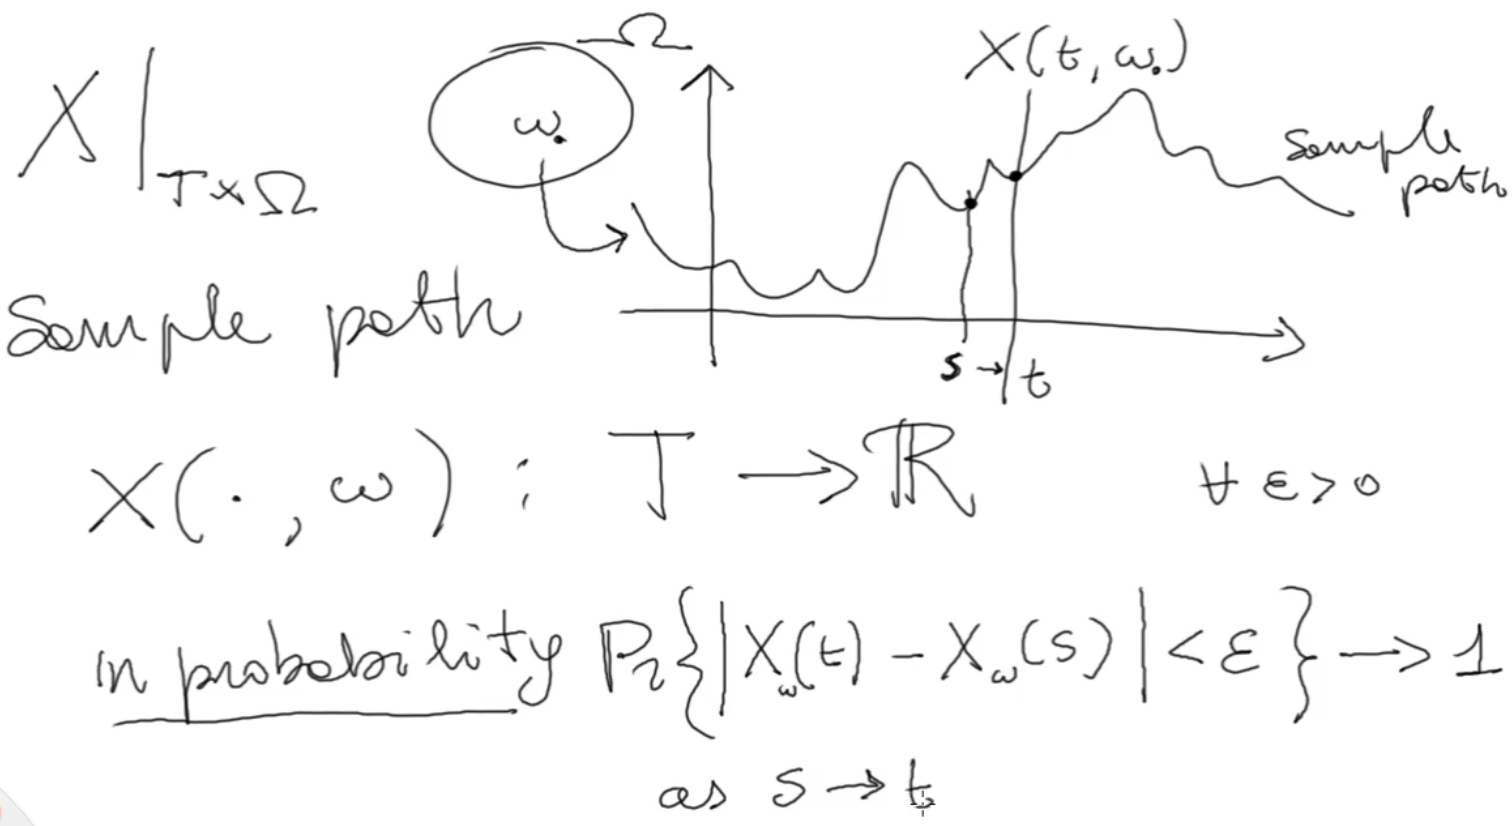 Ω
X|_{T×Ω}
ω.
X(t, ω.)
sample path
s → t
Sample path
X(·, ω) : T → ℝ
∀ ε > 0
in probability Pr{|X_ω(t) − X_ω(s)| < ε} → 1
as s → t